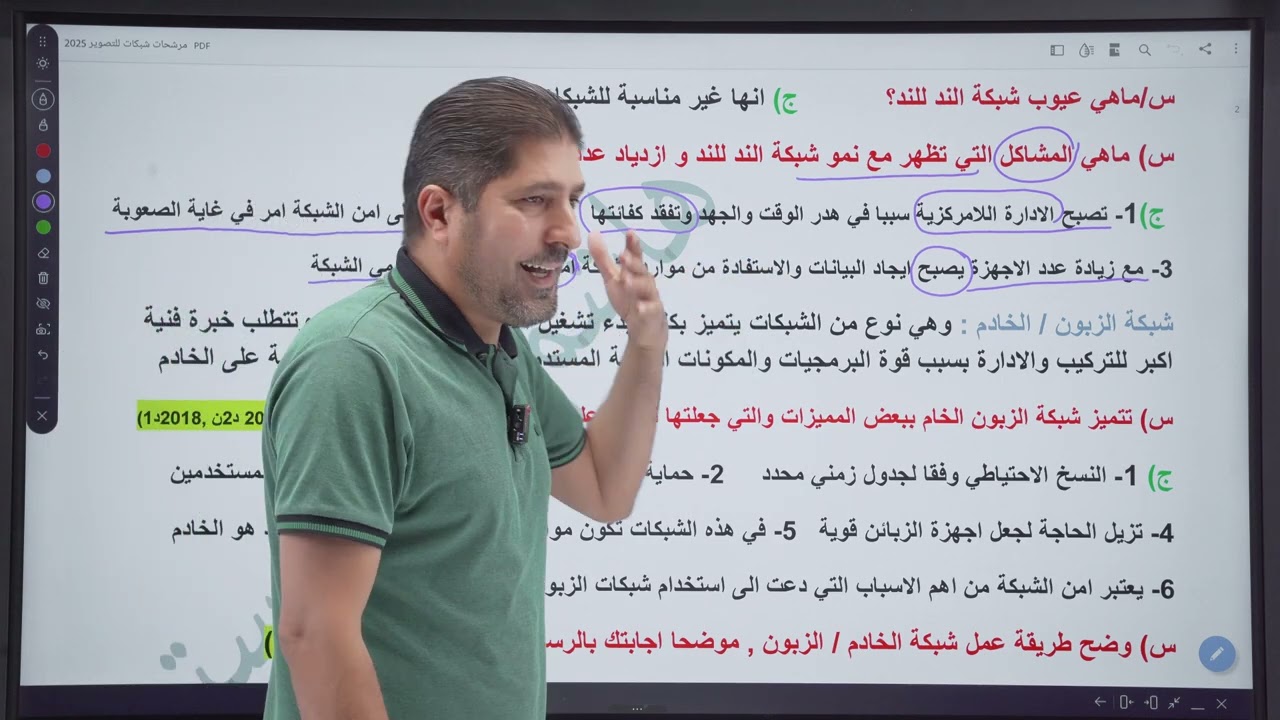 مرشحات شبكات للتصوير 2025 PDF
2
س/ماهي عيوب شبكة الند للند؟ ج) انها غير مناسبة
س) ماهي المشاكل التي تظهر مع نمو شبكة الند للند و ازدياد
ج)1- تصبح الادارة اللامركزية سببا في هدر الوقت والجهد وتفقد كفائتها امن الشبكة امر في غاية الصعوبة
3- مع زيادة عدد الاجهزة يصبح ايجاد البيانات والاستفادة من الشبكة
شبكة الزبون / الخادم : وهي نوع من الشبكات يتميز تشغيل تتطلب خبرة فنية
اكبر للتركيب والادارة بسبب قوة البرمجيات والمكونات على الخادم
س) تتميز شبكة الزبون الخام ببعض المميزات والتي جعلتها د2ن ,2018د1)
ج) 1- النسخ الاحتياطي وفقا لجدول زمني محدد 2- حماية
4- تزيل الحاجة لجعل اجهزة الزبائن قوية 5- في هذه الشبكات تكون هو الخادم
6- يعتبر امن الشبكة من اهم الاسباب التي دعت الى استخدام شبكات
س) وضح طريقة عمل شبكة الخادم / الزبون , موضحا اجابتك